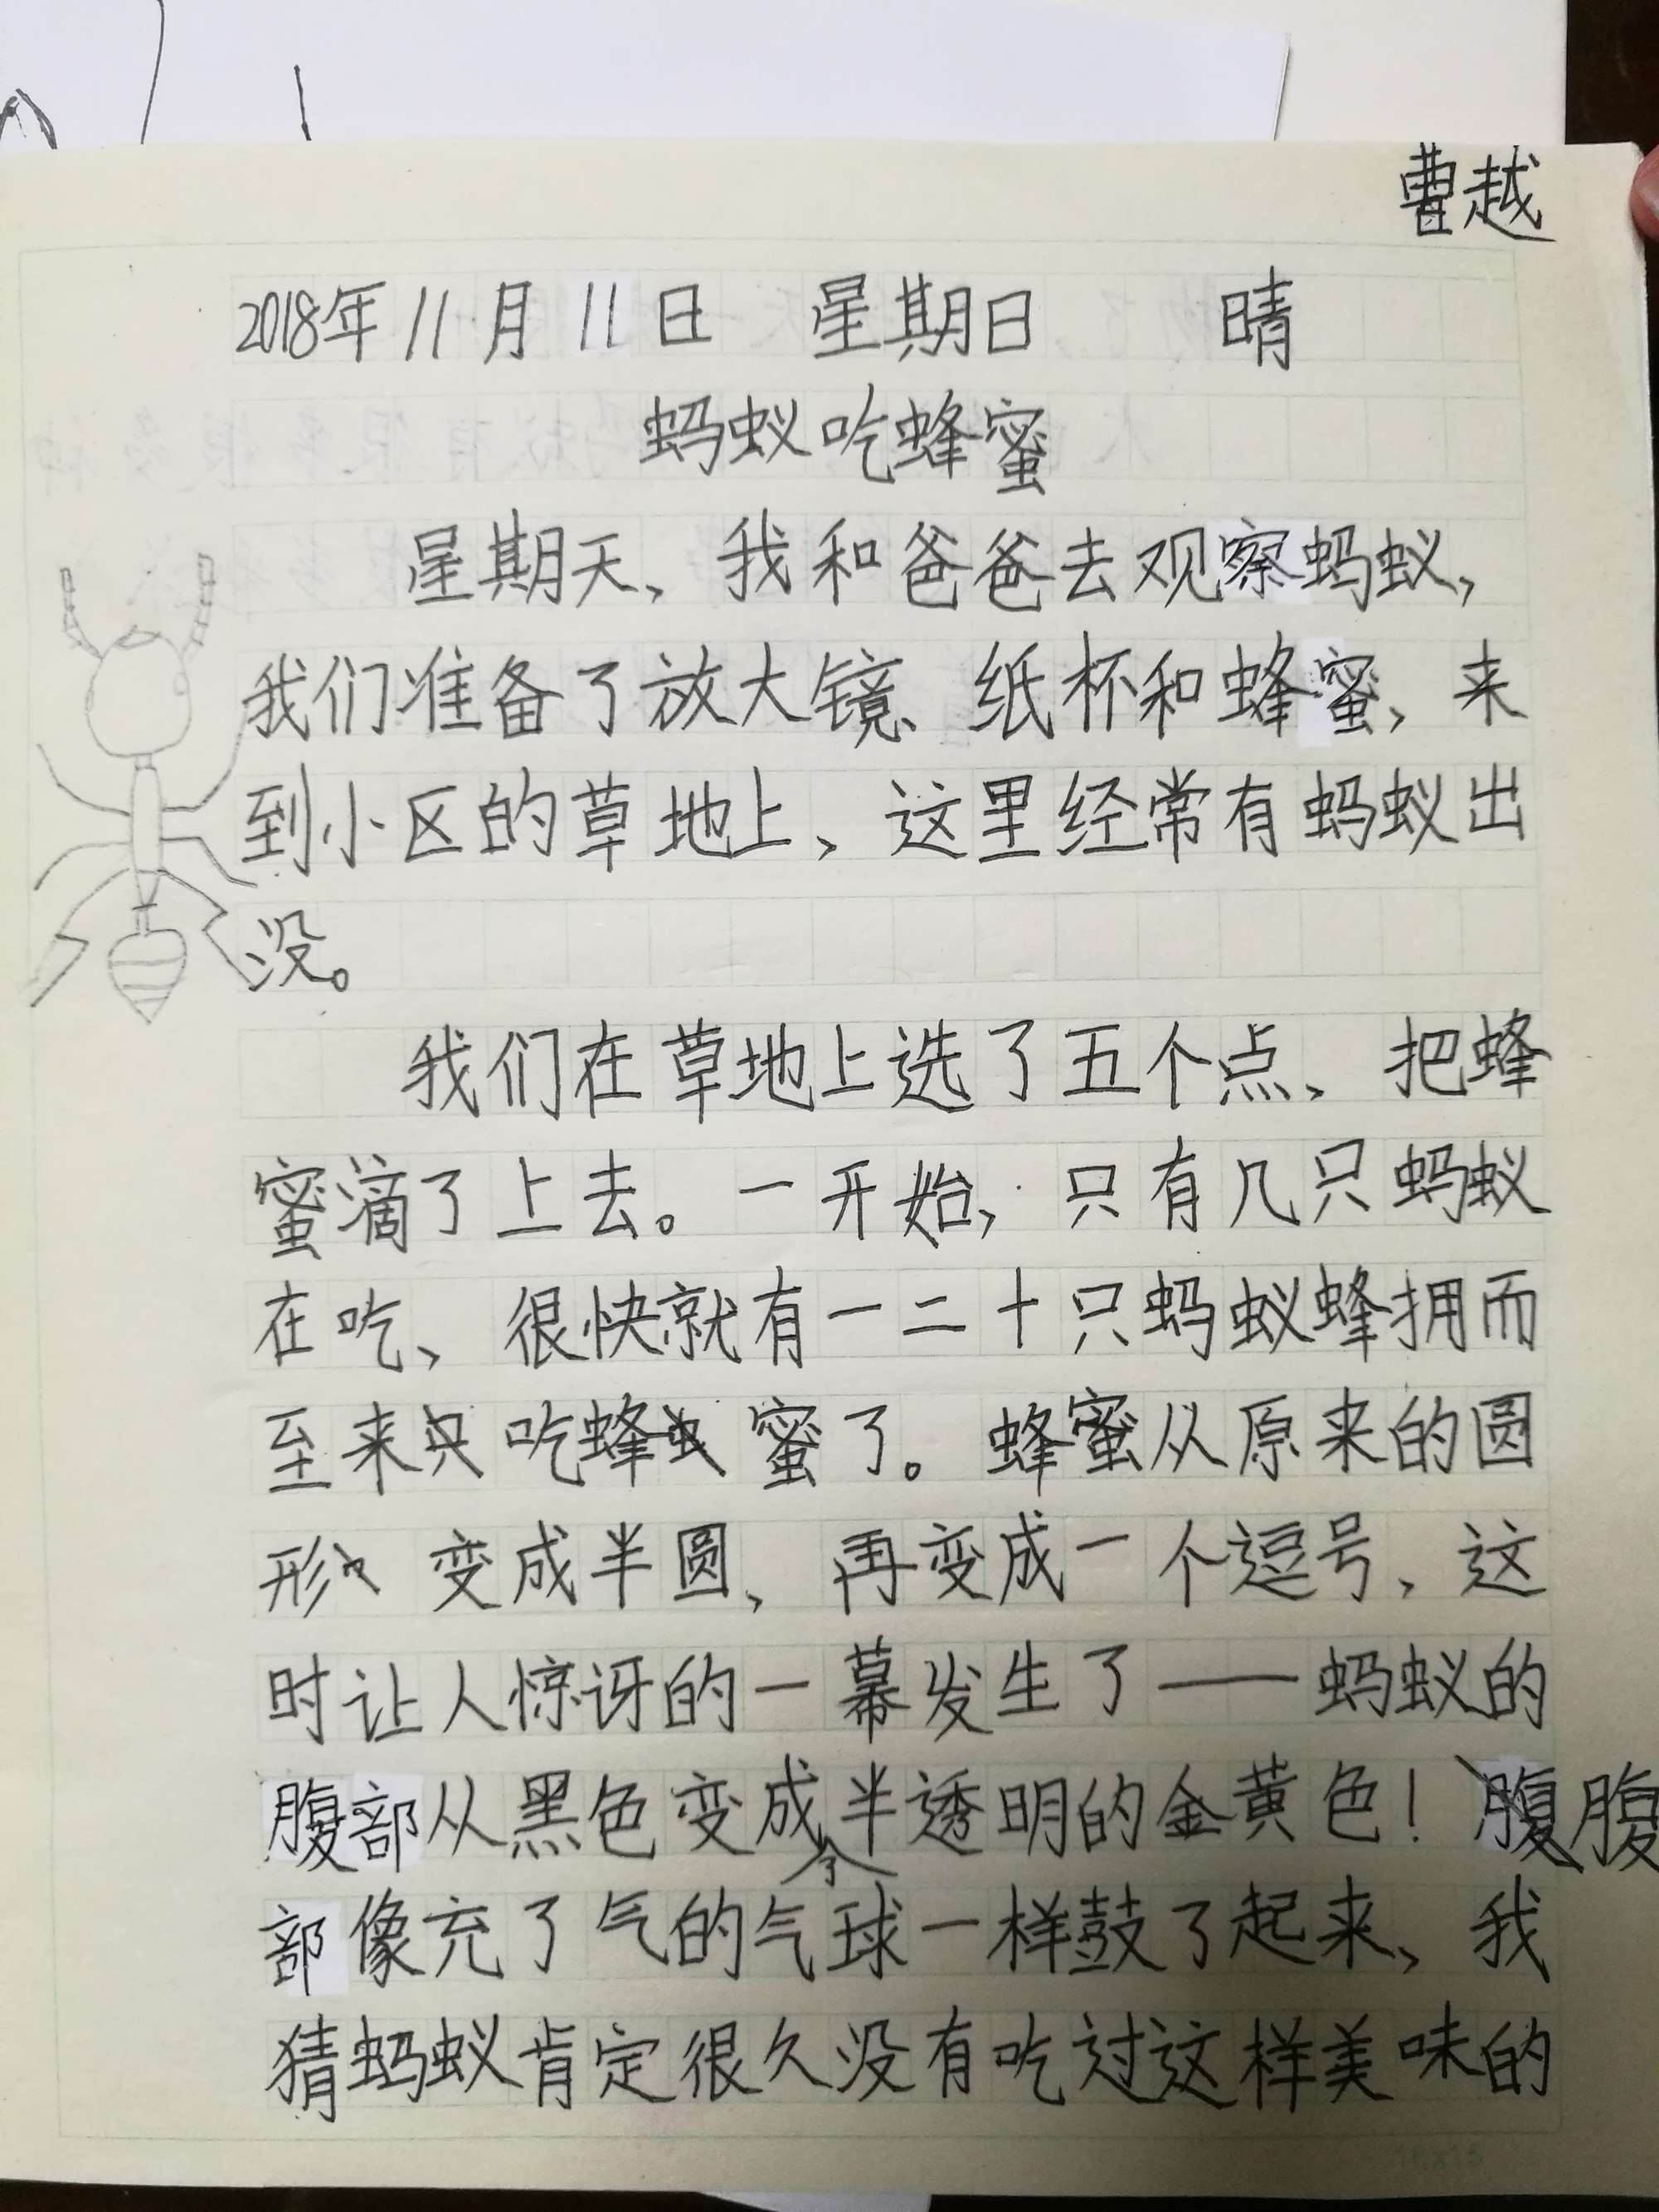 曹越
2018年11月11日 星期日 晴
蚂蚁吃蜂蜜
星期天、我和爸爸去观察蚂蚁，
我们准备了放大镜、纸杯和蜂蜜，来
到小区的草地上、这里经常有蚂蚁出
没。
我们在草地上选了五个点、把蜂
蜜滴了上去。一开始，只有几只蚂蚁
在吃、很快就有一二十只蚂蚁蜂拥而
至来吃蜂蜜了。蜂蜜从原来的圆
形变成半圆、再变成一个逗号、这
时让人惊讶的一幕发生了——蚂蚁的
腹部从黑色变成半透明的金黄色！腹
部像充了气的气球一样鼓了起来、我
猜蚂蚁肯定很久没有吃过这样美味的